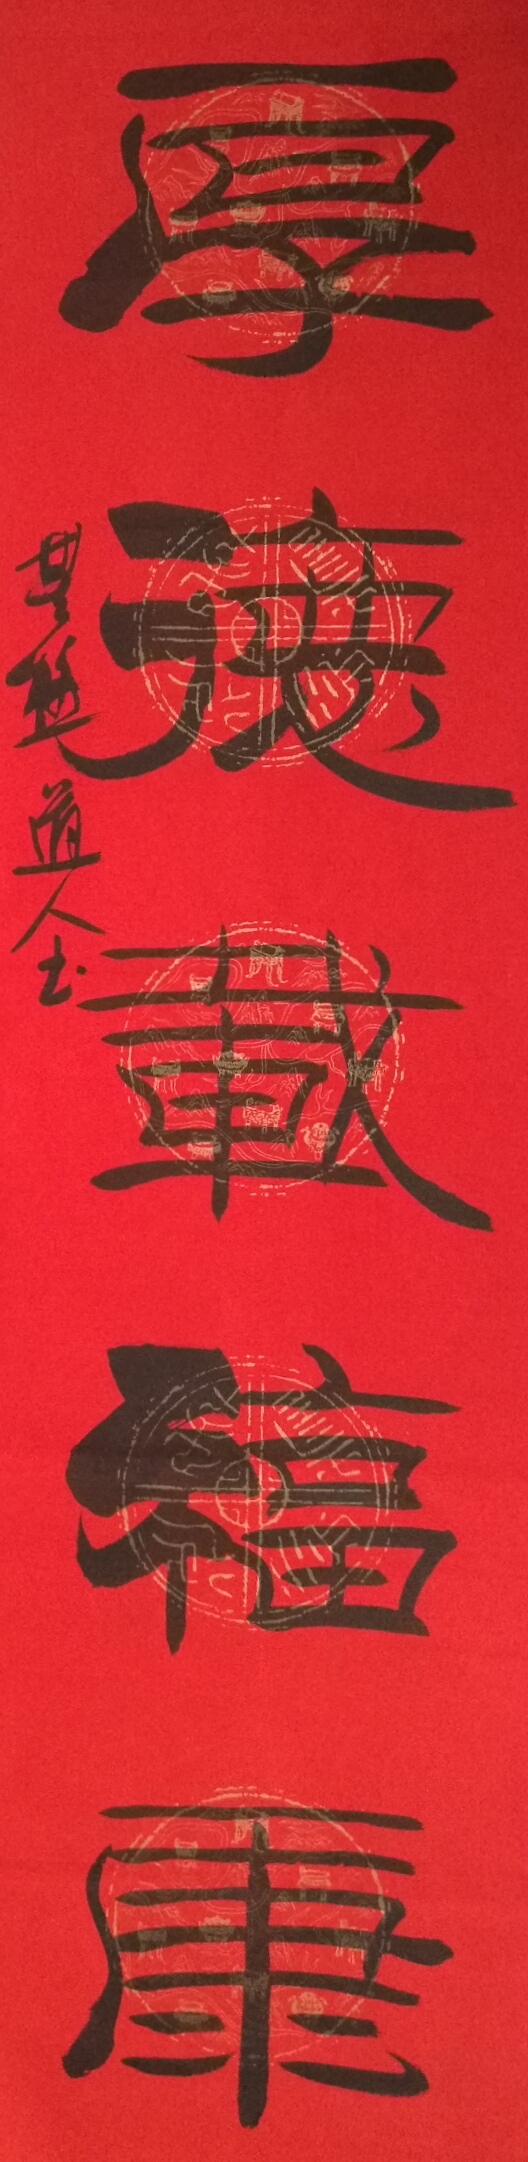 厚德載福康
道人书